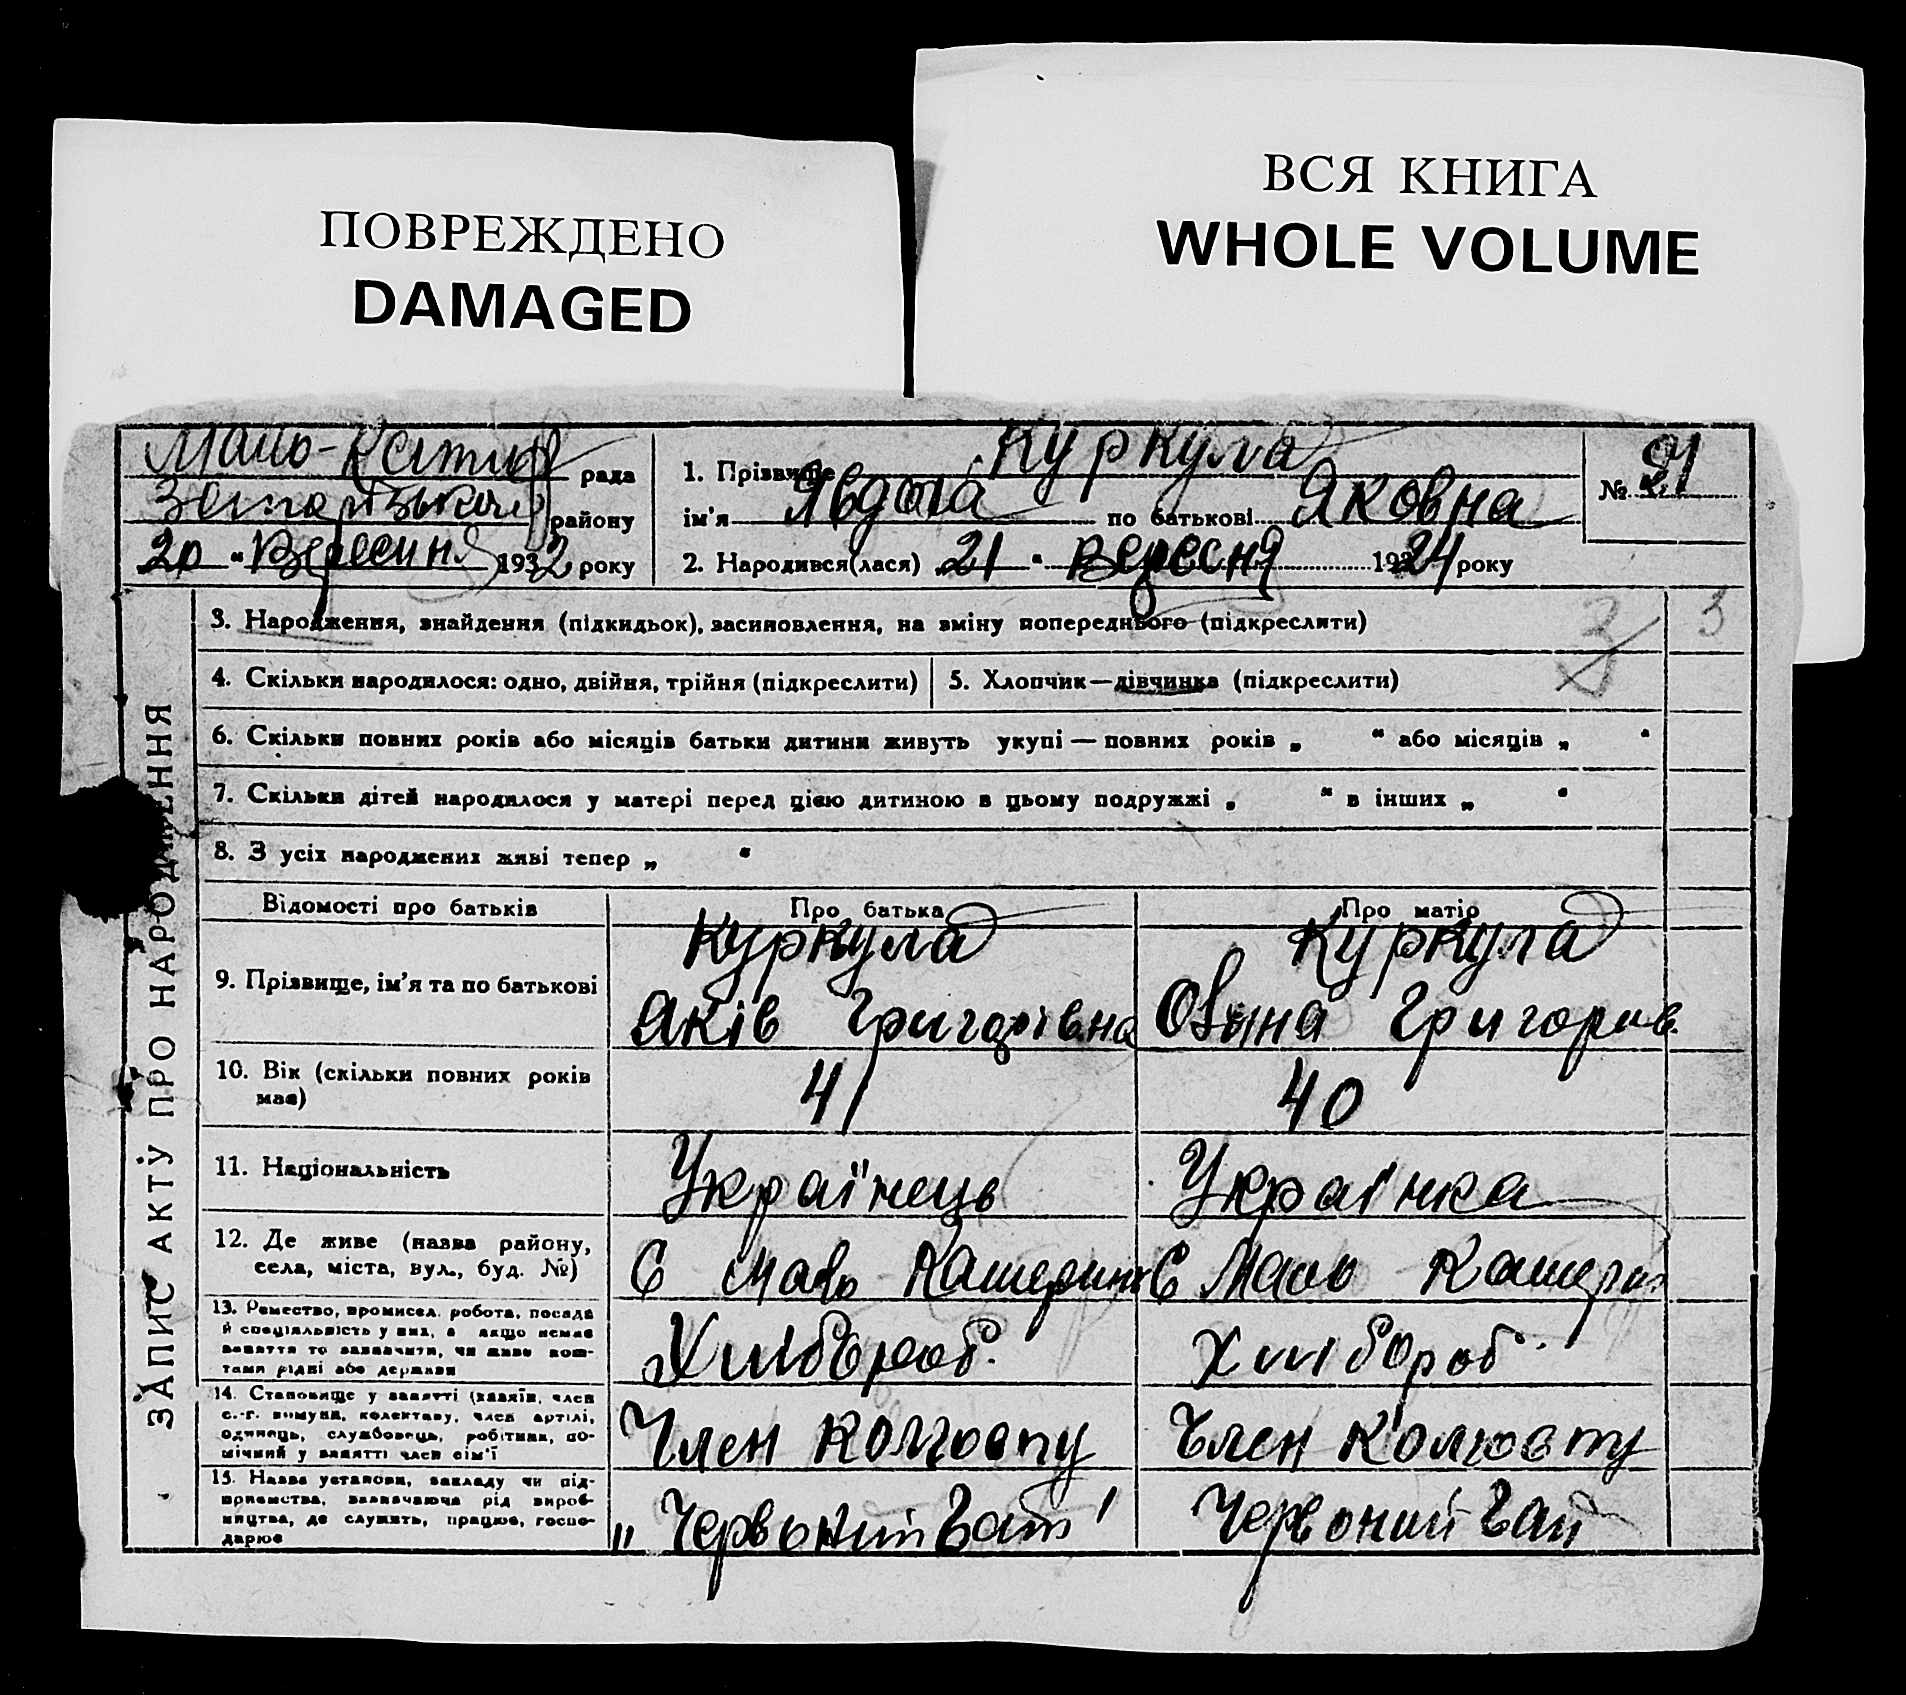 ПОВРЕЖДЕНО
DAMAGED
ВСЯ КНИГА
WHOLE VOLUME
Мало- рада
району
20 " Вересиня 1932 року
1. Прізвище Куркула
ім'я Явдоха по батькові Яковна
2. Народився(лася) 21 " Вересня 1924 року
№ 21
ЗАПИС АКТУ ПРО НАРОДЖЕННЯ
3. Народження, знайдення (підкидьок), засиновлення, на зміну попереднього (підкреслити)
3
4. Скільки народилося: одно, двійня, трійня (підкреслити)
5. Хлопчик—дівчинка (підкреслити)
6. Скільки повних років або місяців батьки дитини живуть укупі — повних років „ " або місяців „ "
7. Скільки дітей народилося у матері перед цією дитиною в цьому подружжі „ " в інших „ "
8. З усіх народжених живі тепер „ "
Відомості про батьків
Про батька
Про матір
9. Прізвище, ім'я та по батькові
Куркула
Яків Григорівна
Куркула
Григорив.
10. Вік (скільки повних років
має)
41
40
11. Національність
Україиець
Українка
12. Де живе (назва району,
села, міста, вул., буд. №)
С Мало Катерин
С Мало Катерин
13. Ремество, промисел. робота, посада
й спеціяльність у них, а якщо немає
заняття то зазначити, чи живе кош-
тами рідні або держави
Хліброб.
Хлібороб
14. Становище у занятті (хазяїн, член
с.-г. комуни, колективу, член артілі,
одинець, службовець, робітник, по-
мічний у занятті член сім'ї
Член колгоспу
Член колгоспу
15. Назва установи, закладу чи під-
приємства, зазначаюча рід вироб-
ництва, де служить, працює, госпо-
дарює
„ Червоний Гай "
Червоний Гай